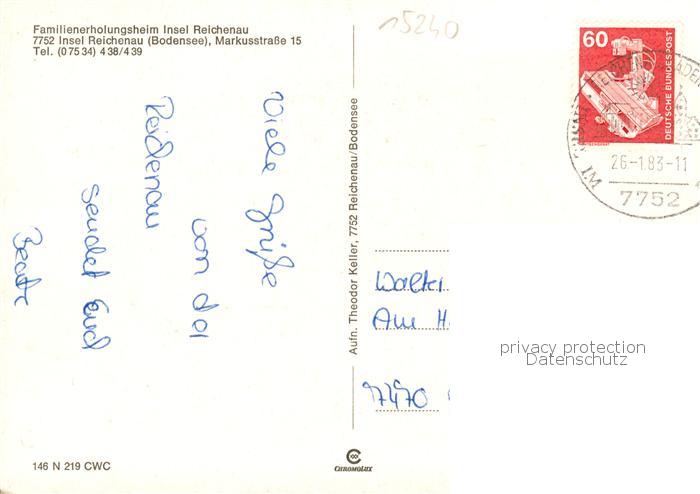 Familienerholungsheim Insel Reichenau
7752 Insel Reichenau (Bodensee), Markusstraße 15
Tel. (0 75 34) 4 38/4 39
15240
60
DEUTSCHE BUNDESPOST
26.-1.83-11
7752
Viele Grüße
von der
Reichenau
sendet Euch
Beate
Aufn. Theodor Keller, 7752 Reichenau/Bodensee
Walter
Am H
7470
privacy protection
Datenschutz
146 N 219 CWC
CHROMOLUX